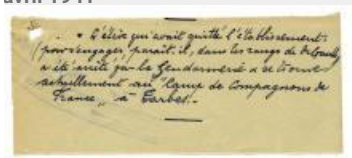 avril 1941
. • Célric qui avait quitté l'établissement
(pour s'engager paraît-il, dans les rangs de de Gaulle
a été arrêté par la Gendarmerie se trouve
actuellement au "Camp de Compagnons de
France" à Tarbes.-